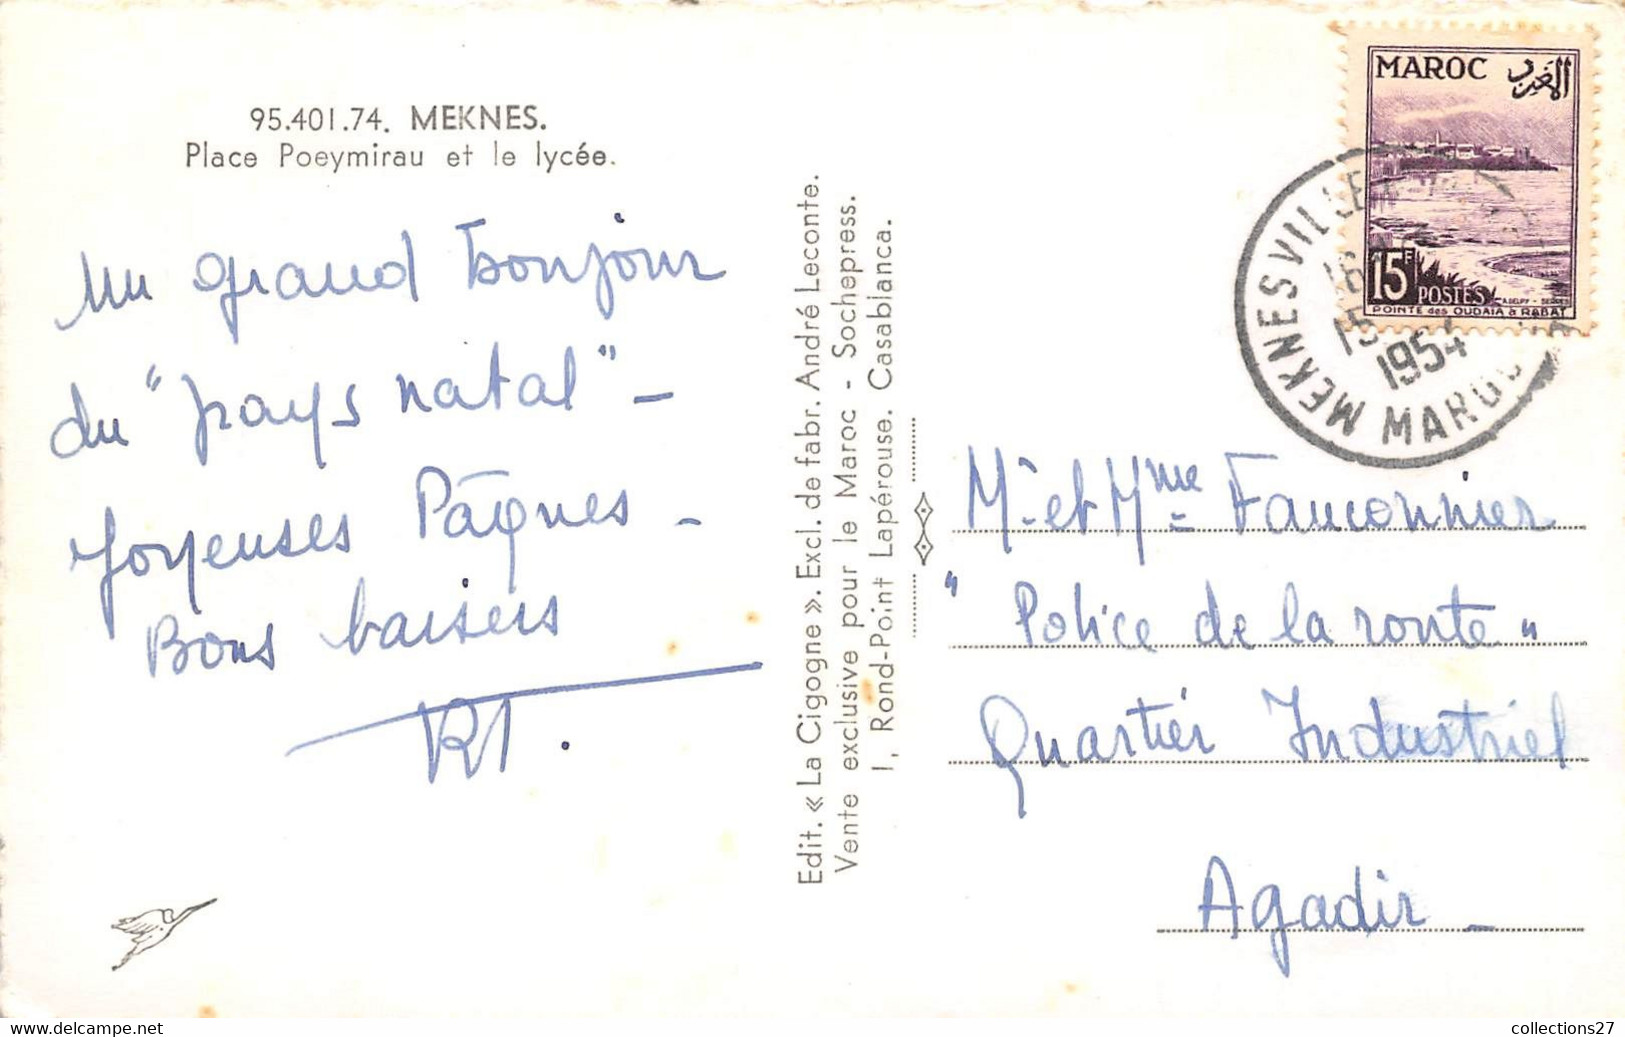 95.401.74. MEKNES.
Place Poeymirau et le lycée.
Un grand bonjour
du "pays natal" –
Joyeuses Pâques –
Bons baisers
Edit. « La Cigogne ». Excl. de fabr. André Leconte.
Vente exclusive pour le Maroc - Sochepress.
1, Rond-Point Lapérouse. Casablanca.
MAROC المغرب
15F POSTES
POINTE des OUDAIA à RABAT
MEKNES VILLE
15
1954
MAROC
Mr et Mme Fauconnier
"Police de la route"
Quartier Industriel
Agadir –
collections27